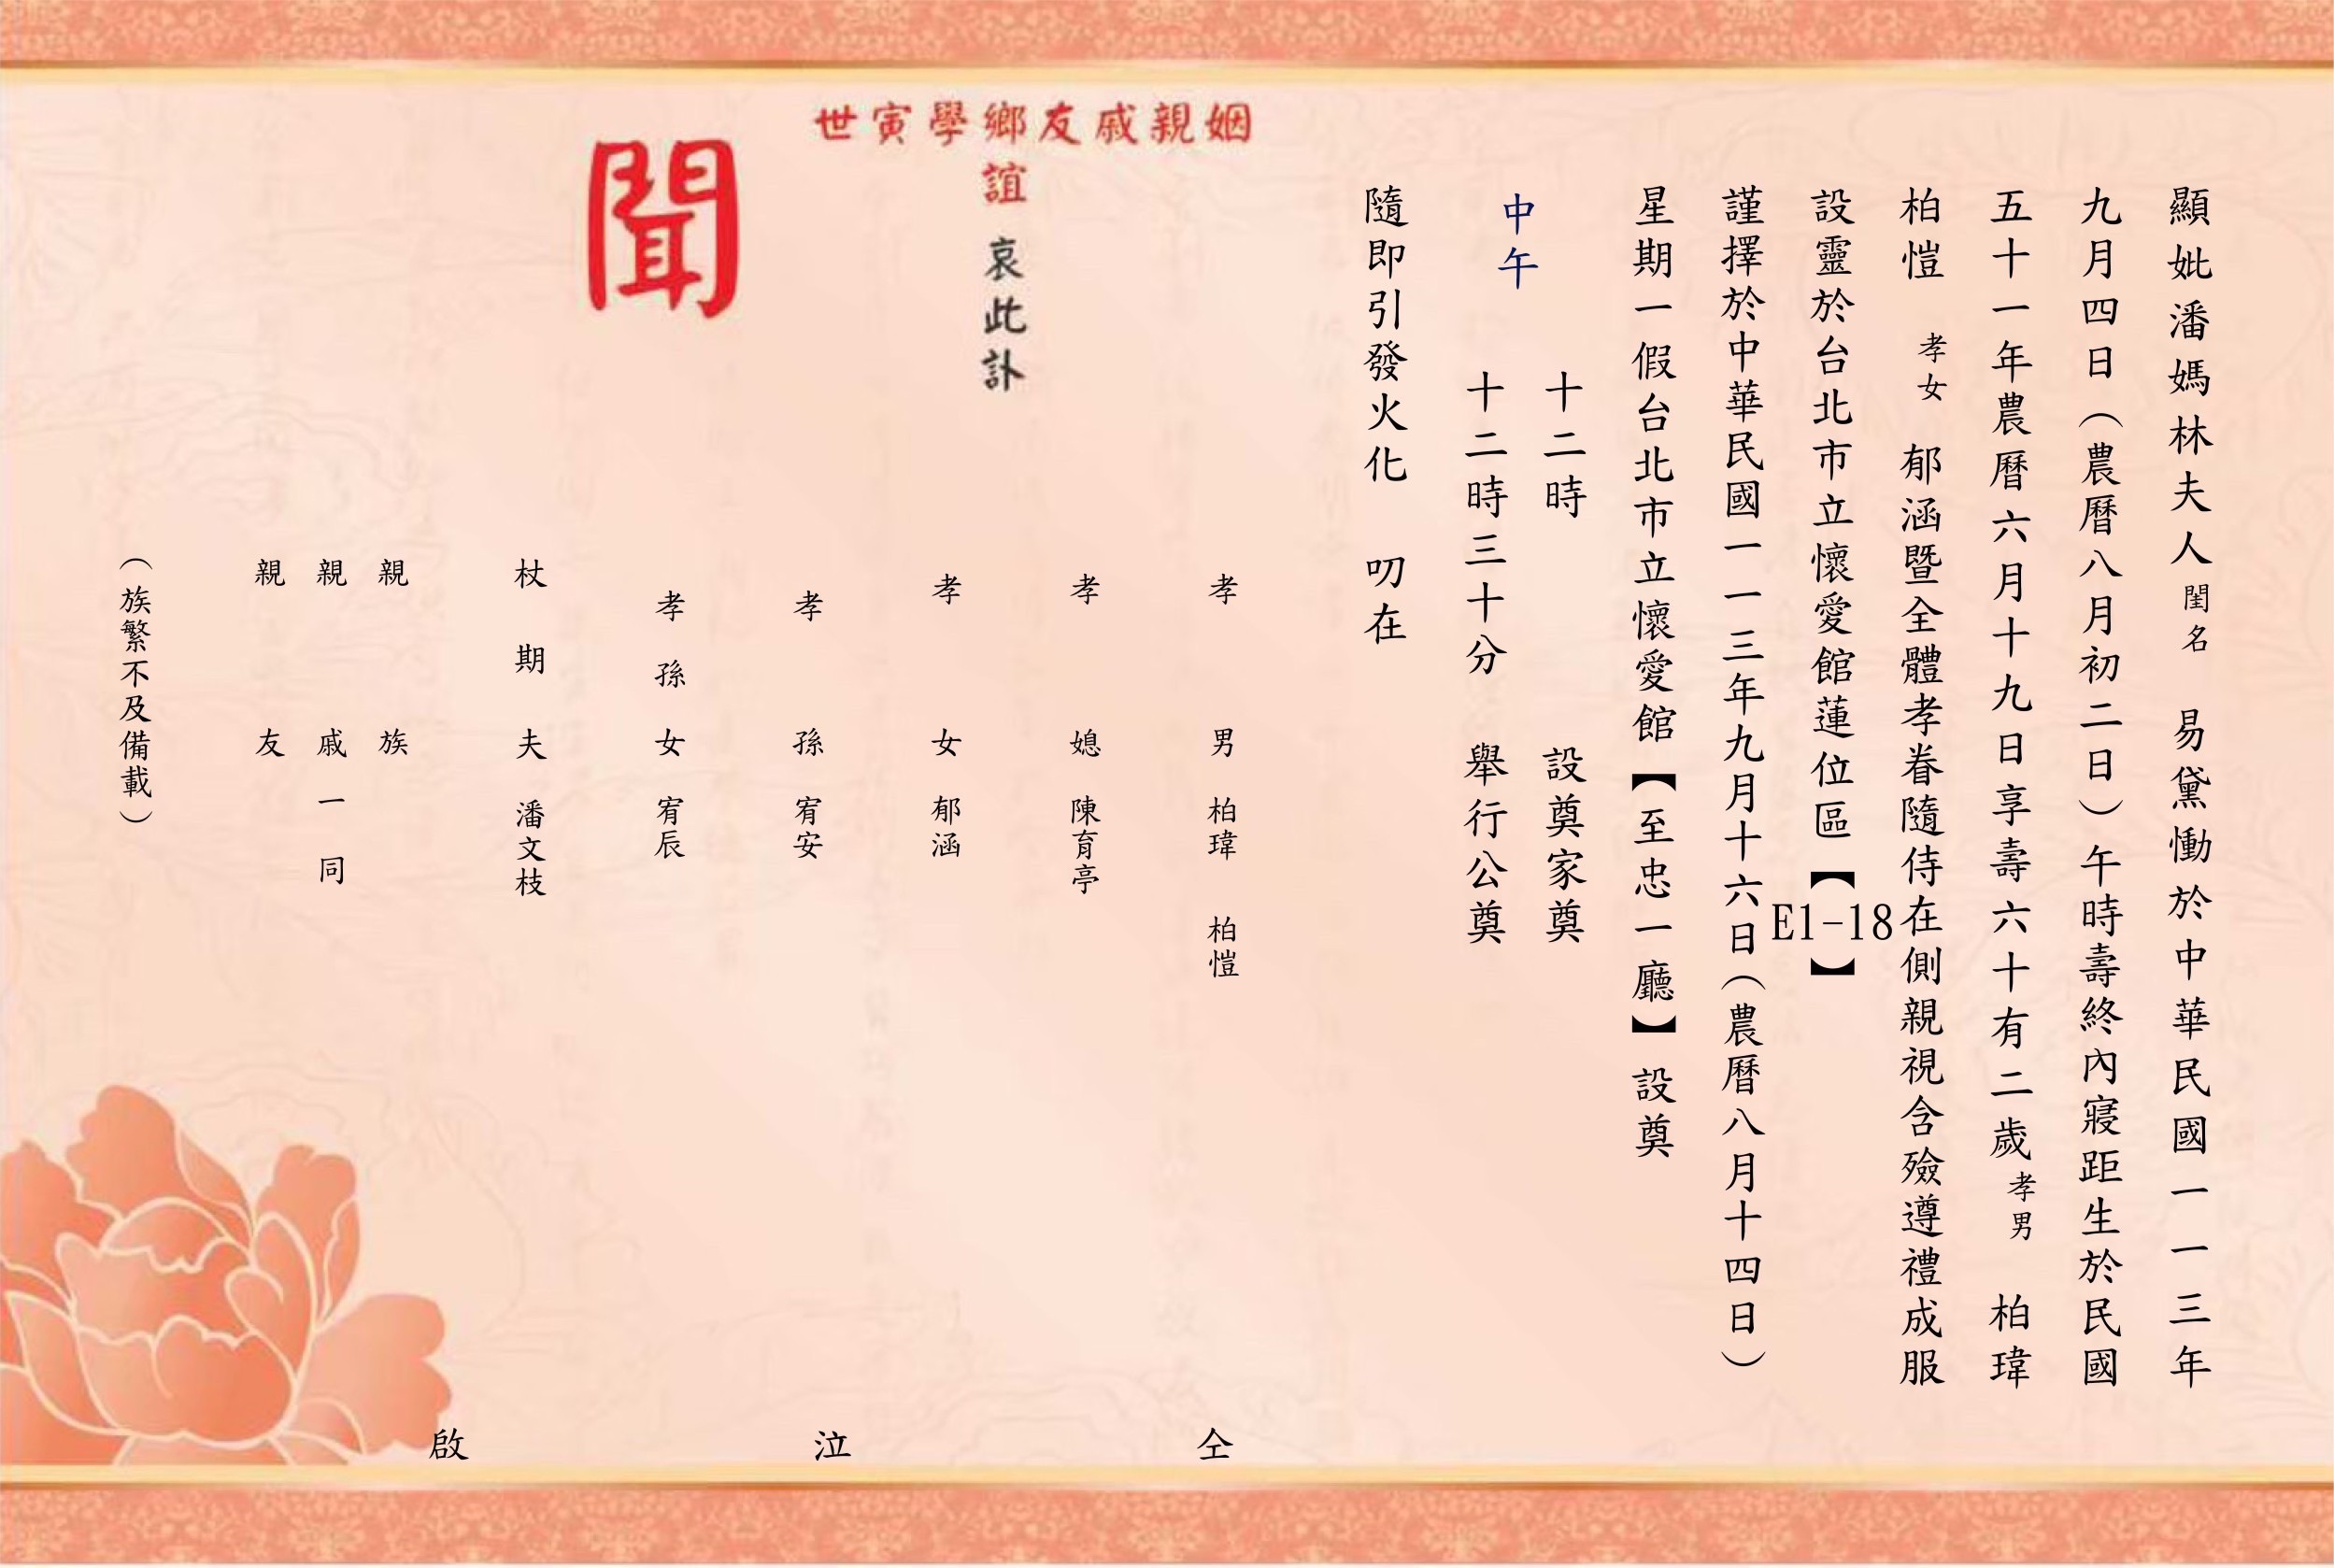 顯妣潘媽林夫人閨名 易黛慟於中華民國一一三年
九月四日（農曆八月初二日）午時壽終內寢距生於民國
五十一年農曆六月十九日享壽六十有二歲孝男 柏瑋
柏愷 孝女 郁涵暨全體孝眷隨侍在側親視含殮遵禮成服
設靈於台北市立懷愛館蓮位區【E1-18】
謹擇於中華民國一一三年九月十六日（農曆八月十四日）
星期一假台北市立懷愛館【至忠一廳】設奠
中午
十二時 設奠家奠
十二時三十分 舉行公奠
隨即引發火化 叨在
姻親戚友鄉學寅世
誼 哀此訃
聞
孝男 柏瑋 柏愷
孝媳 陳育亭
孝女 郁涵
孝孫 宥安
孝孫女 宥辰
杖期夫 潘文枝
親族
親戚一同
親友
（族繁不及備載）
仝 泣 啟